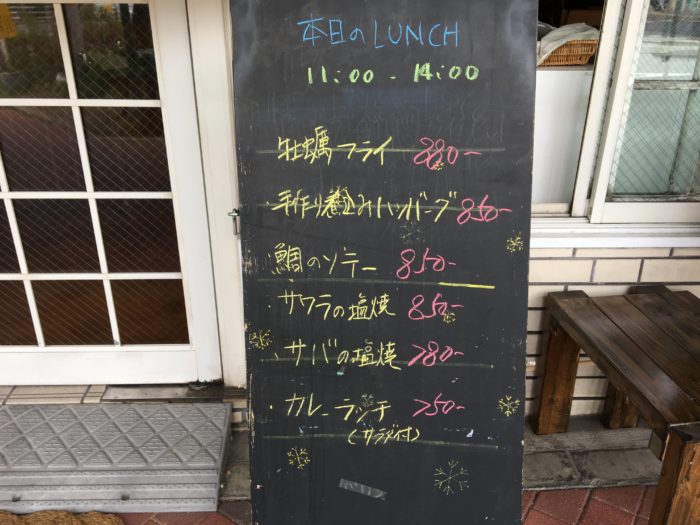 本日のLUNCH
11:00 - 14:00
・牡蠣フライ 880-
・手作り煮込みハンバーグ 850-
・鯛のソテー 850-
・サワラの塩焼 850-
・サバの塩焼 780-
・カレーランチ 750-
(サラダ付)